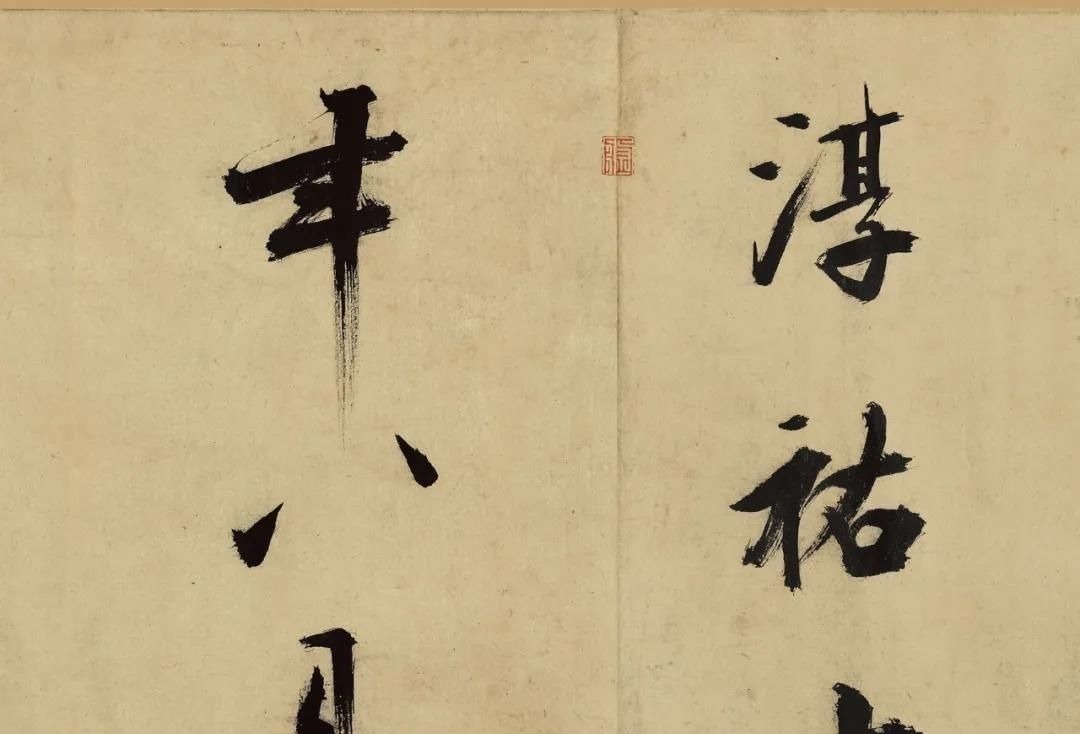 淳祐
年八月